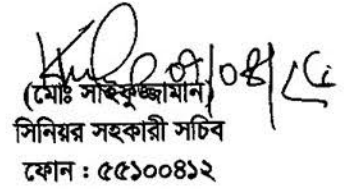 (মোঃ সাইফুজ্জামান)
সিনিয়র সহকারী সচিব
ফোন : ৫৫১০০৪১২